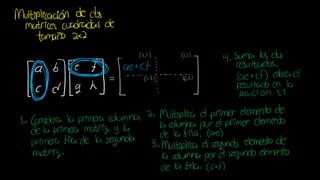 Multiplicación de dos
matrices cuadradas de
tamaño 2x2
[a b] [e f] = [ae+cf]
[c d] [g h]
(1,1) (1,2)
(2,1) (2,2)
1. Considera la primera columna
de la primera matriz y la
primera fila de la segunda
matriz.
2. Multiplica el primer elemento de
la columna por el primer elemento
de la fila. (ae)
3. Multiplica el segundo elemento de
la columna por el segundo elemento
de la fila. (cf)
4. Suma los dos
resultados,
(ae+cf)
resultado en la
posición 1,1